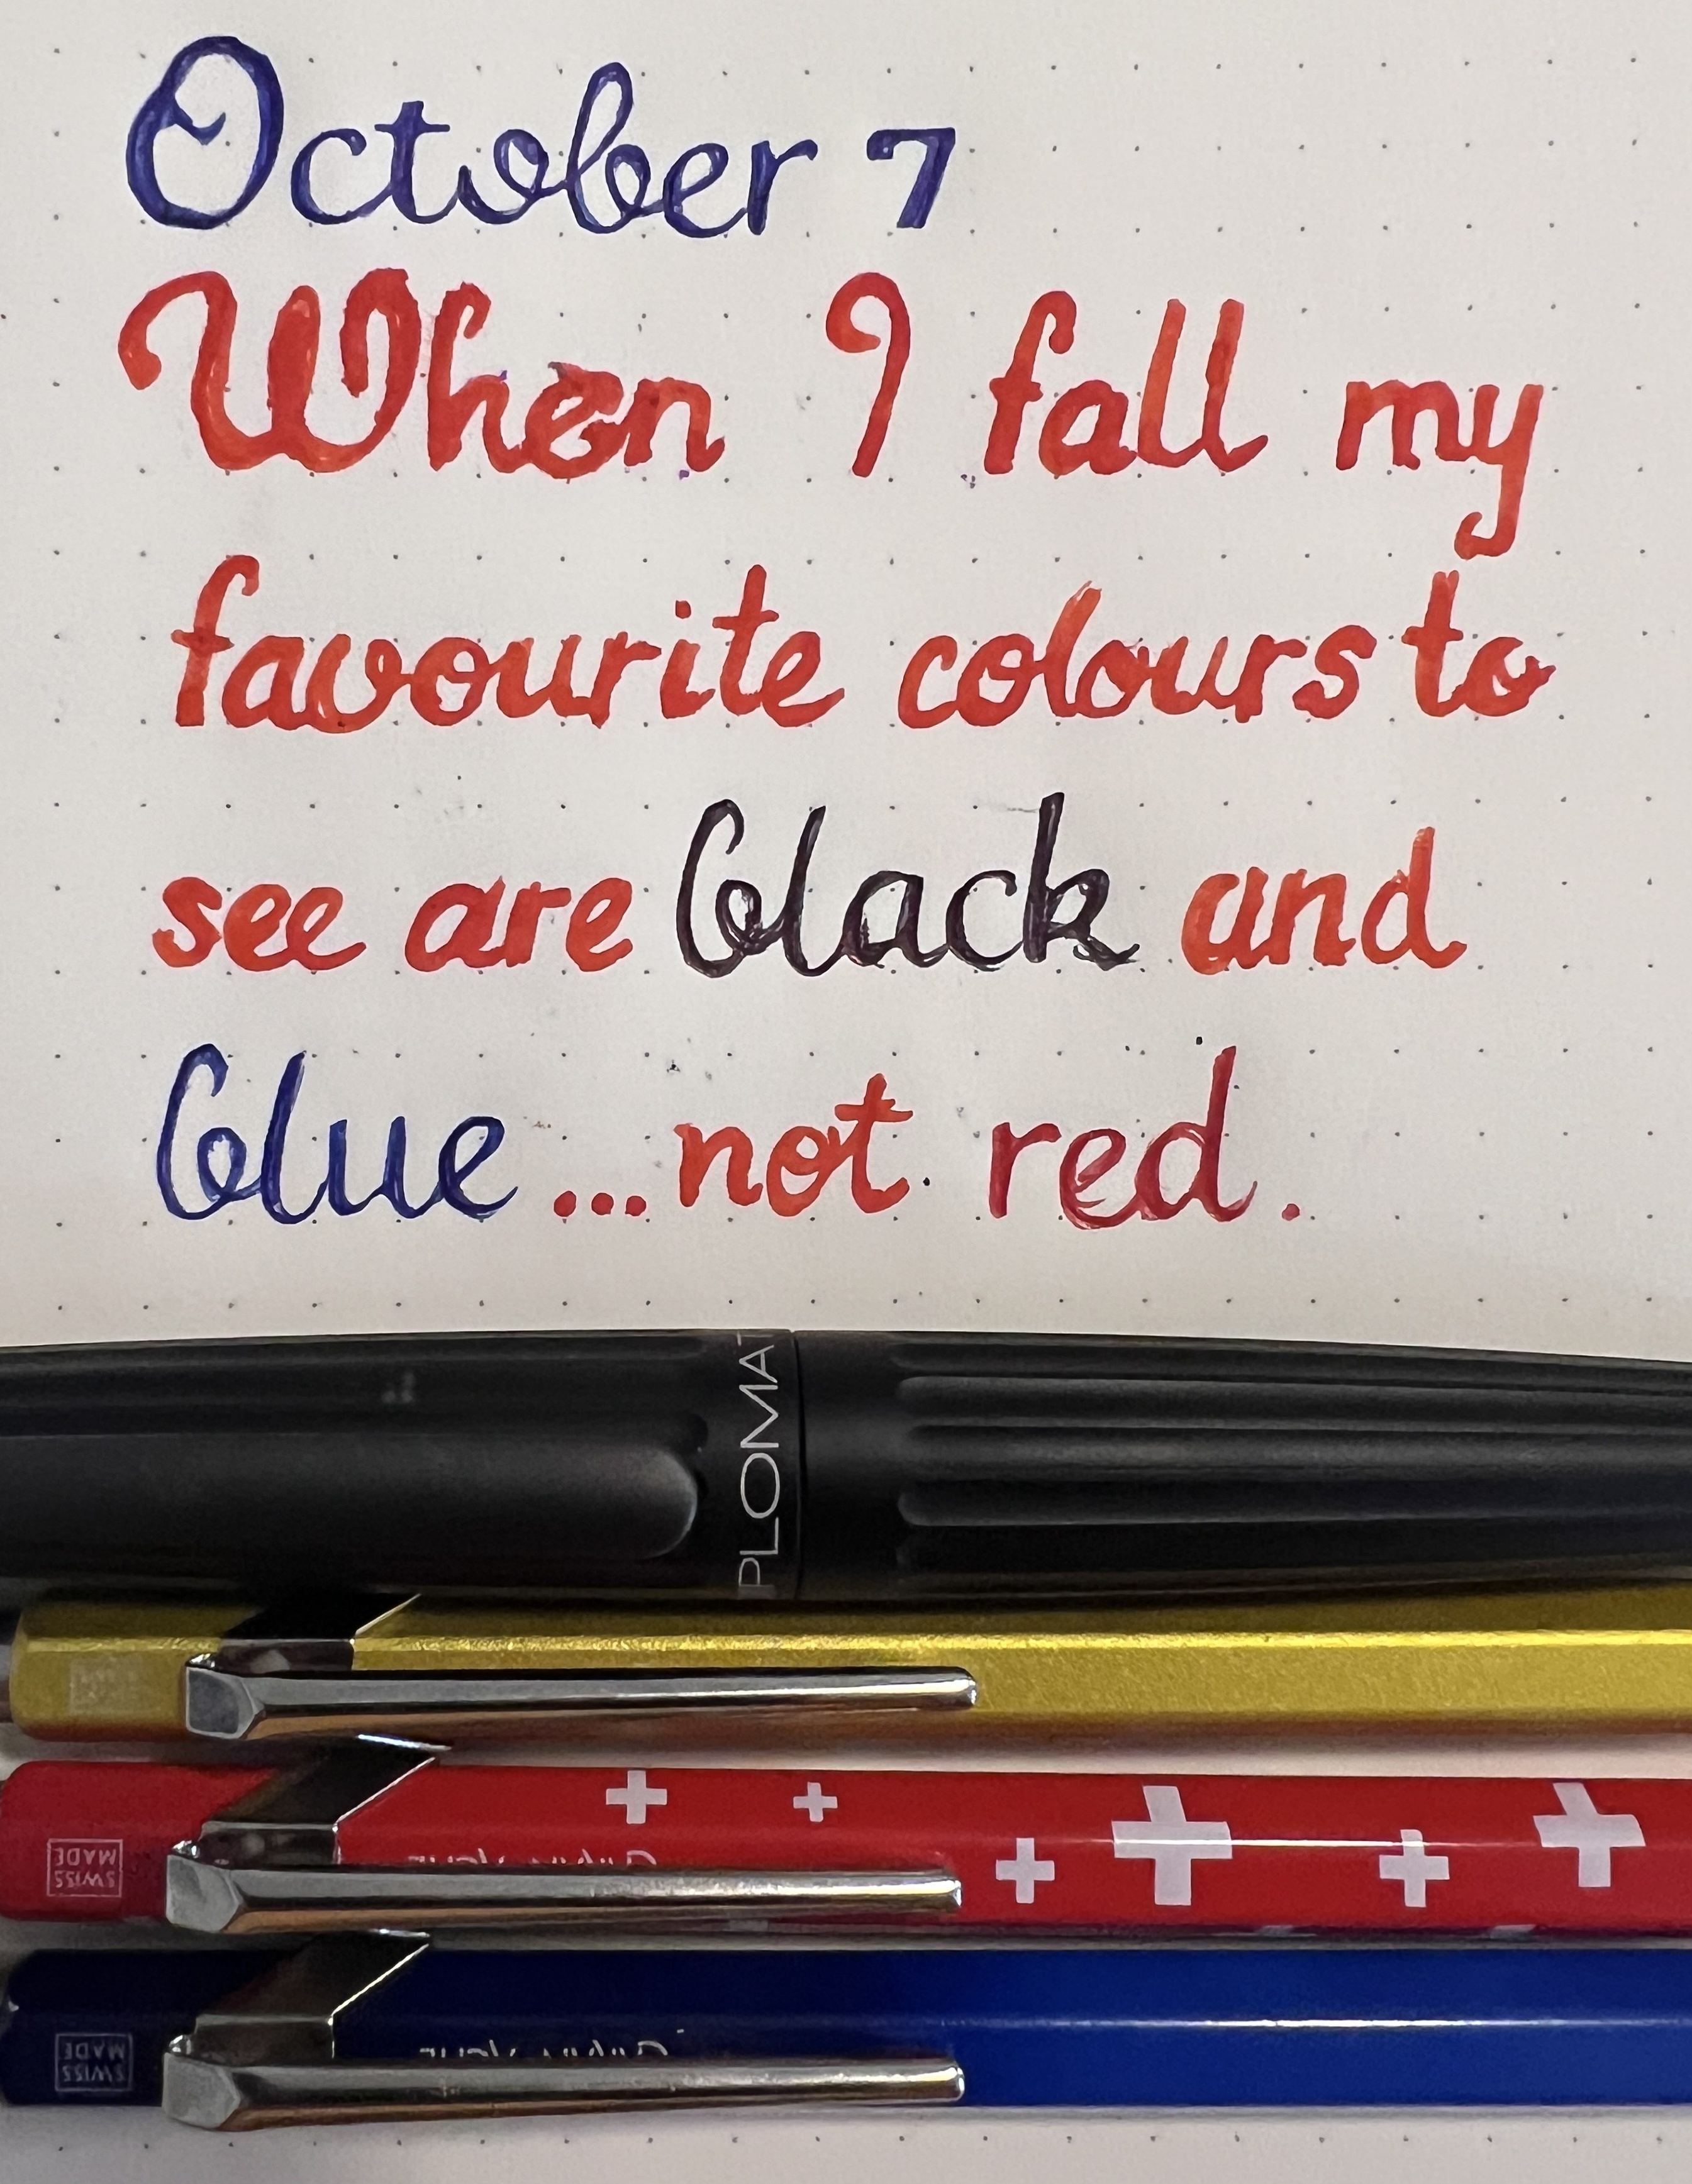 October 7
When I fall my
favourite colours to
see are black and
blue...not red.
PLOMAT
SWISS
MADE
SWISS
MADE